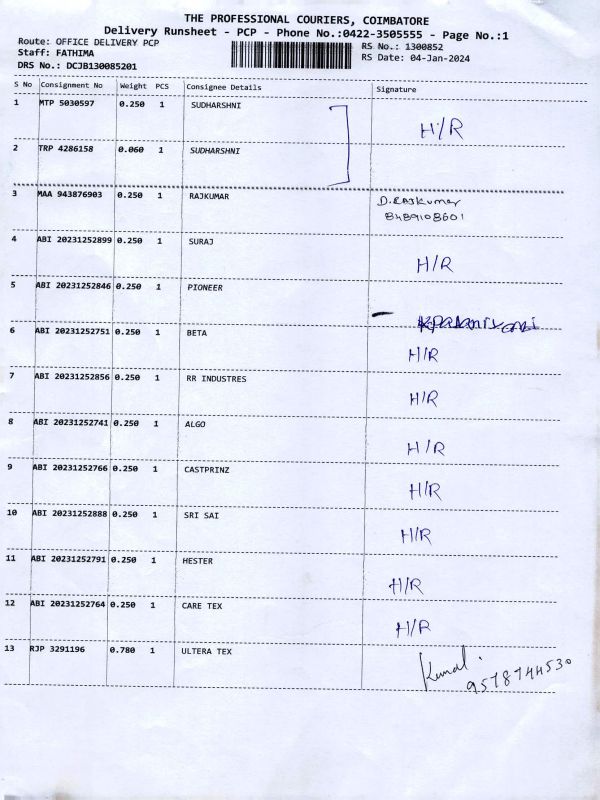 THE PROFESSIONAL COURIERS, COIMBATORE
Delivery Runsheet - PCP - Phone No.:0422-3505555 - Page No.:1
Route: OFFICE DELIVERY PCP
Staff: FATHIMA
DRS No.: DCJB130085201
RS No.: 1300852
RS Date: 04-Jan-2024
S No Consignment No Weight PCS Consignee Details Signature
1 MTP 5030597 0.250 1 SUDHARSHNI
H/R
2 TRP 4286158 0.060 1 SUDHARSHNI
3 MAA 943876903 0.250 1 RAJKUMAR D.RAJKUMAR
8489108601
4 ABI 20231252899 0.250 1 SURAJ
H/R
5 ABI 20231252846 0.250 1 PIONEER
6 ABI 20231252751 0.250 1 BETA
H/R
7 ABI 20231252856 0.250 1 RR INDUSTRES
H/R
8 ABI 20231252741 0.250 1 ALGO
H/R
9 ABI 20231252766 0.250 1 CASTPRINZ
H/R
10 ABI 20231252888 0.250 1 SRI SAI
H/R
11 ABI 20231252791 0.250 1 HESTER
H/R
12 ABI 20231252764 0.250 1 CARE TEX
H/R
13 RJP 3291196 0.780 1 ULTERA TEX
Kunal.
9578744530